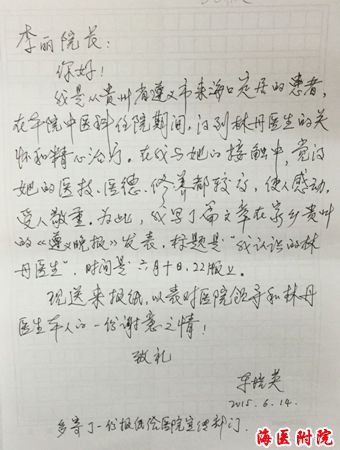 李丽院长：
你好！
我是从贵州省遵义市来海口定居的患者，
在本院中医科住院期间，得到林丹医生的关
怀和精心治疗。在我与她的接触中，觉得
她的医技、医德、修养都较高，使人感动，
受人敬重。为此，我写了篇文章在家乡贵州
的《遵义晚报》发表，标题是"我认识的林
丹医生"，时间是六月十日，22版上。
现送来报纸，以表对医院领导和林丹
医生本人的一份谢意之情！
致礼
2015.6.14.
多寄了一份报纸给医院宣传部门。
海医附院